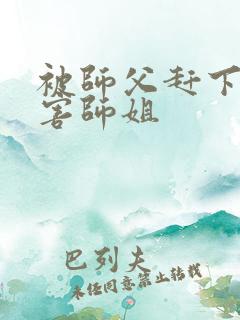 被師父赶下
害師姐
巴列夫
未经同意禁止转载